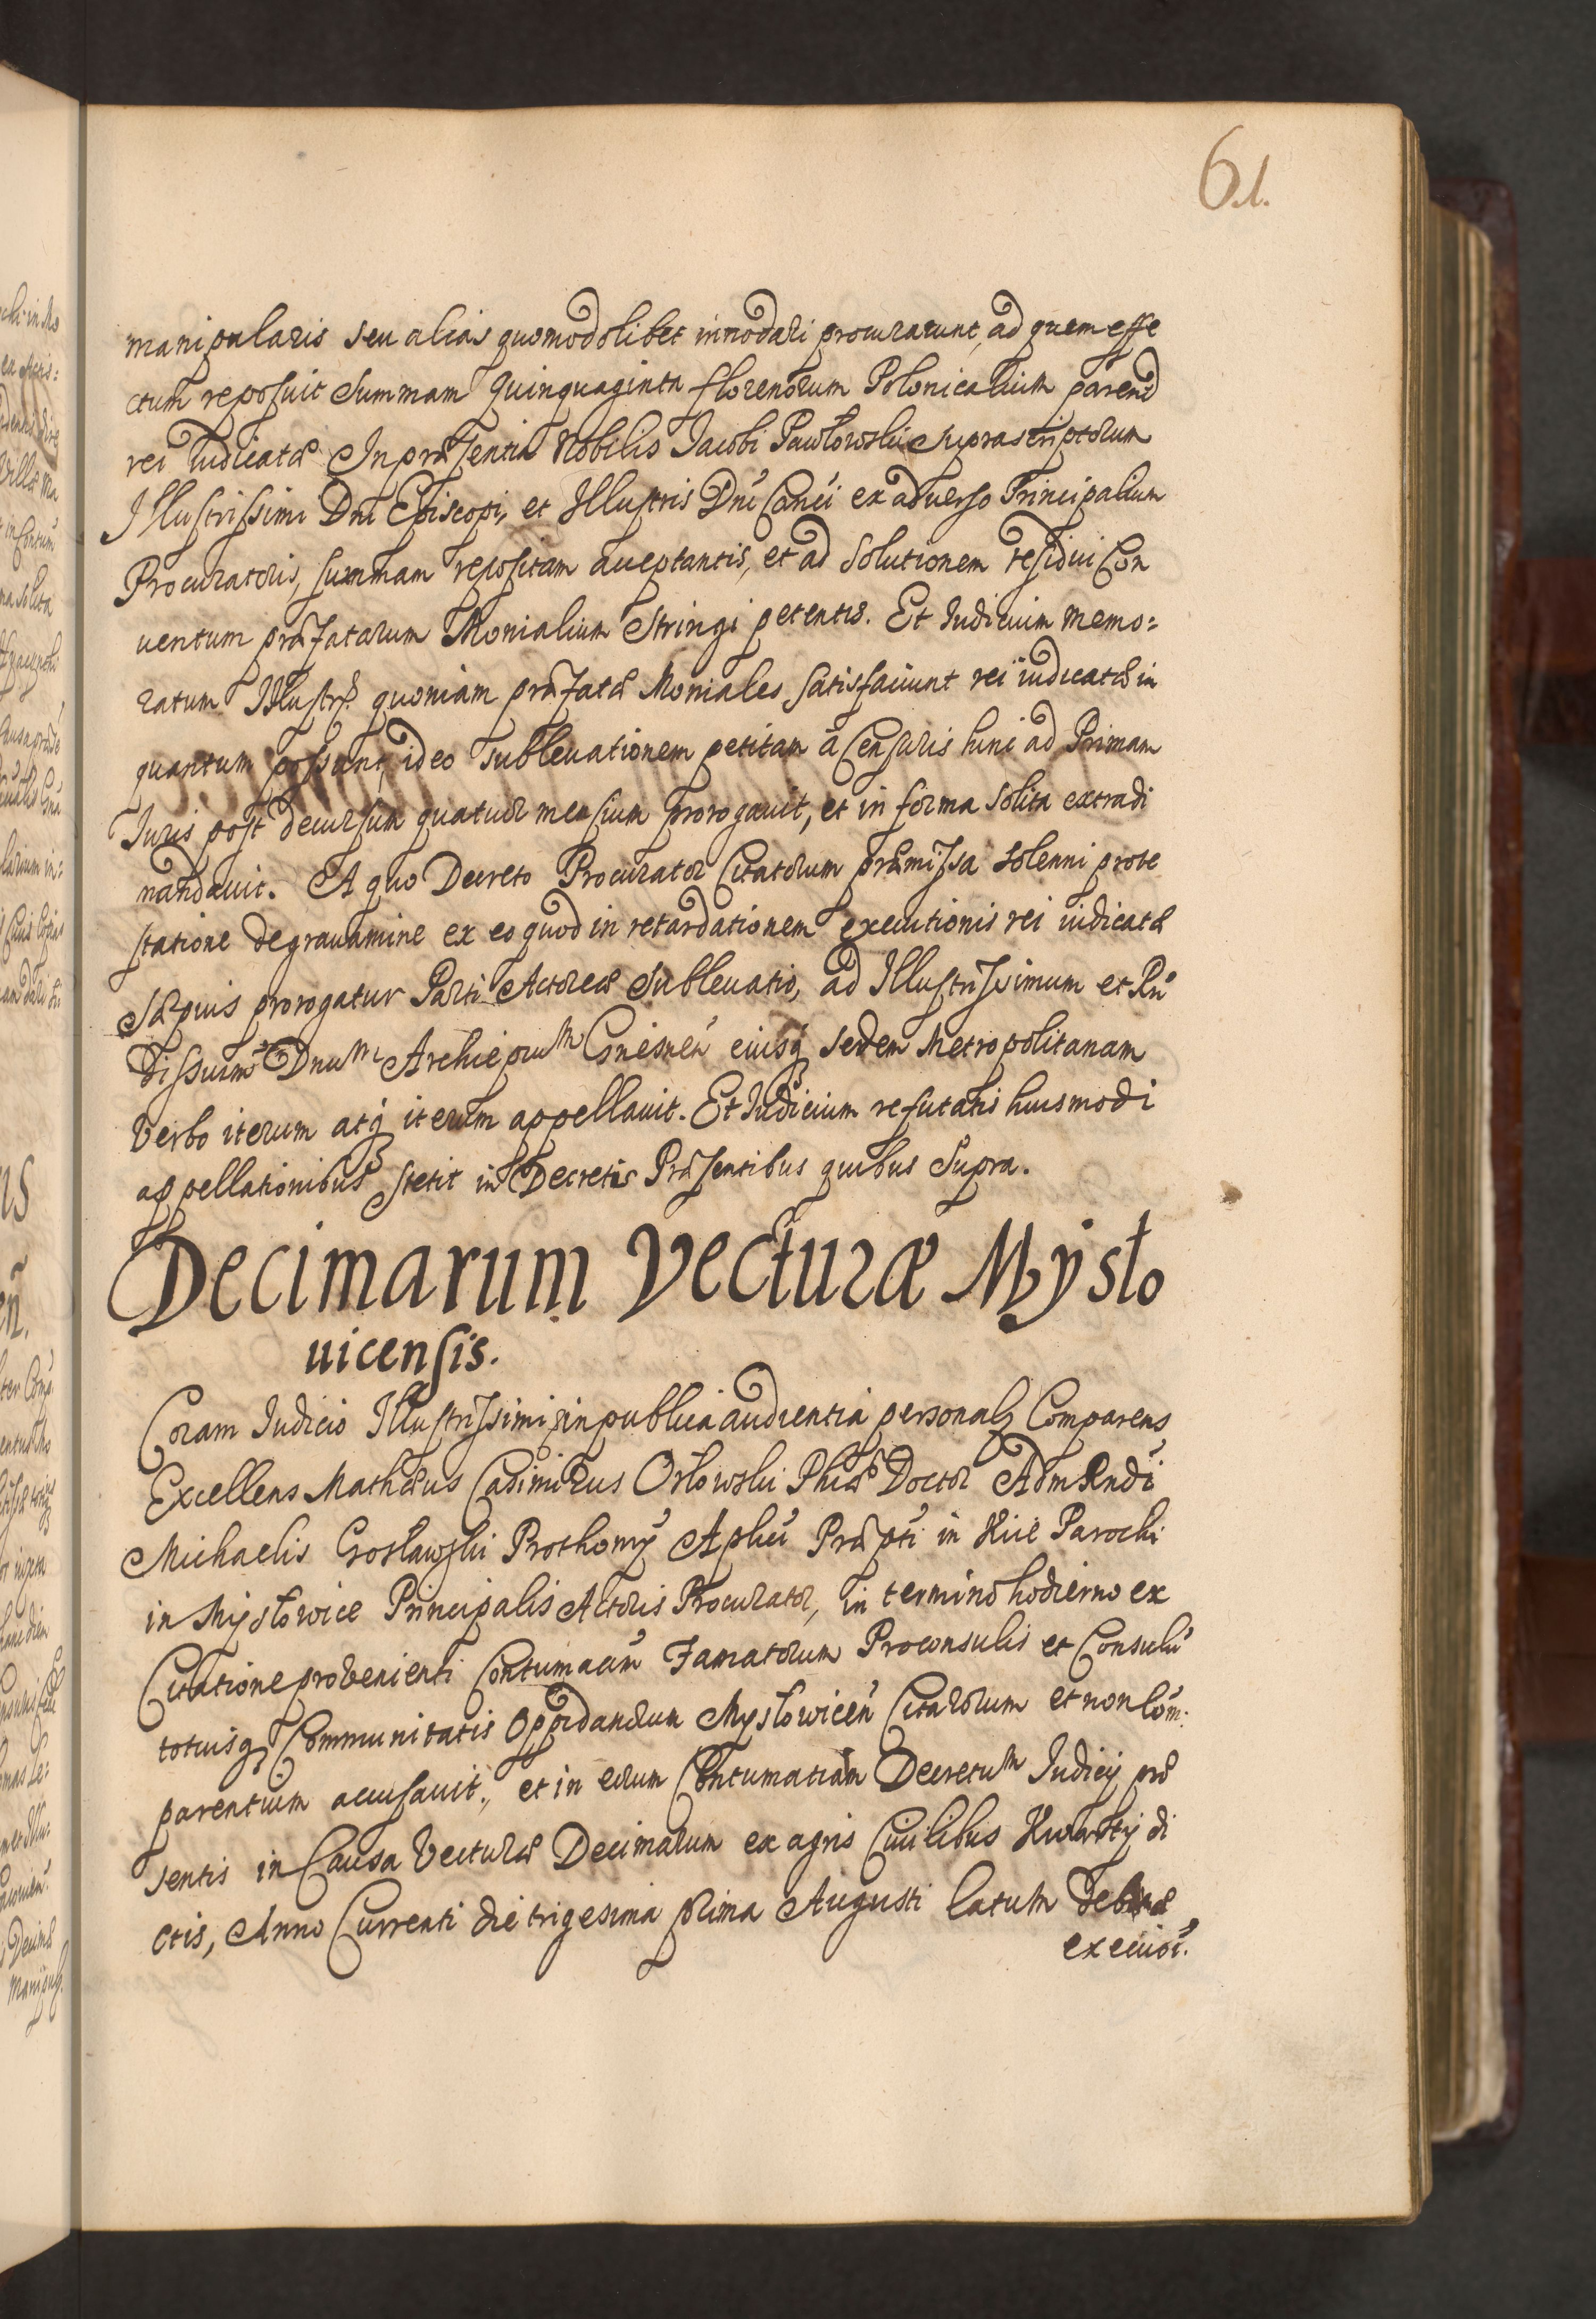 61.
manipularis seu alias quomodolibet innodari procurarunt, ad quem effe
ctum reposuit summam Quinquaginta florenorum Polonicalium parend
rei iudicatæ In præsentia Nobilis Jacobi Pawłowski suprascriptorum
Illustrissimi Dnī Episcopi, et Illustris Dnī Canci ex adverso Principalium
Procuratoris, summam repositam acceptantis, et ad solutionem residui Con
uentum præfatarum Monialium stringi petentis. Et Iudicium memo=
ratum Illustrs. quoniam præfatæ Moniales satisfaciunt rei iudicatæ in
quantum possunt, ideo subleuationem petitam à Censuris hinc ad Primam
Iuris post decursum quatuor mensium prorogauit, et in forma solita extradi
mandauit. A quo Decreto Procurator Citatorum præmissa solenni prote
statione de grauamine ex eo quod in retardationem executionis rei iudicatæ
sæpius prorogatur Parti Actoreæ subleuatio, ad Illustrissimum et Rn
dissimū Dnum Archiepum Gnesneń eiusq sedem Metropolitanam
Verbo iterum atq iterum appellauit. Et Iudicium refutatis huiusmodi
appellationibus stetit in Decretis Præsentibus quibus supra.
Decimarum Vecturæ Mysło
uicensis.
Coram Iudicio Illustrissimi in publica audientia personalr Comparens
Excellens Mathæus Casimirus Orłowski Phiæ Doctor Adm Rndi
Michaelis Grosławski Prothonrÿ Aplici Præpti in Xiie Parochi
in Mysłowice Principalis Actoris Procurator, in termino hodierno ex
Citatione prouenienti Contumaciam Famatorum Proconsulis et Consulū
totiusq Communitatis Oppidanorum Mysłowiceń Citatorum et non Com:
parentium accusauit, et in eorum Contumatiam Decretum Iudicij præ
sentis in Causa Vecturæ Decimarum ex agris Ciuilibus Kwarty di
ctis, Anno Currenti die trigesima prima Augusti latum debitæ
execuoi.